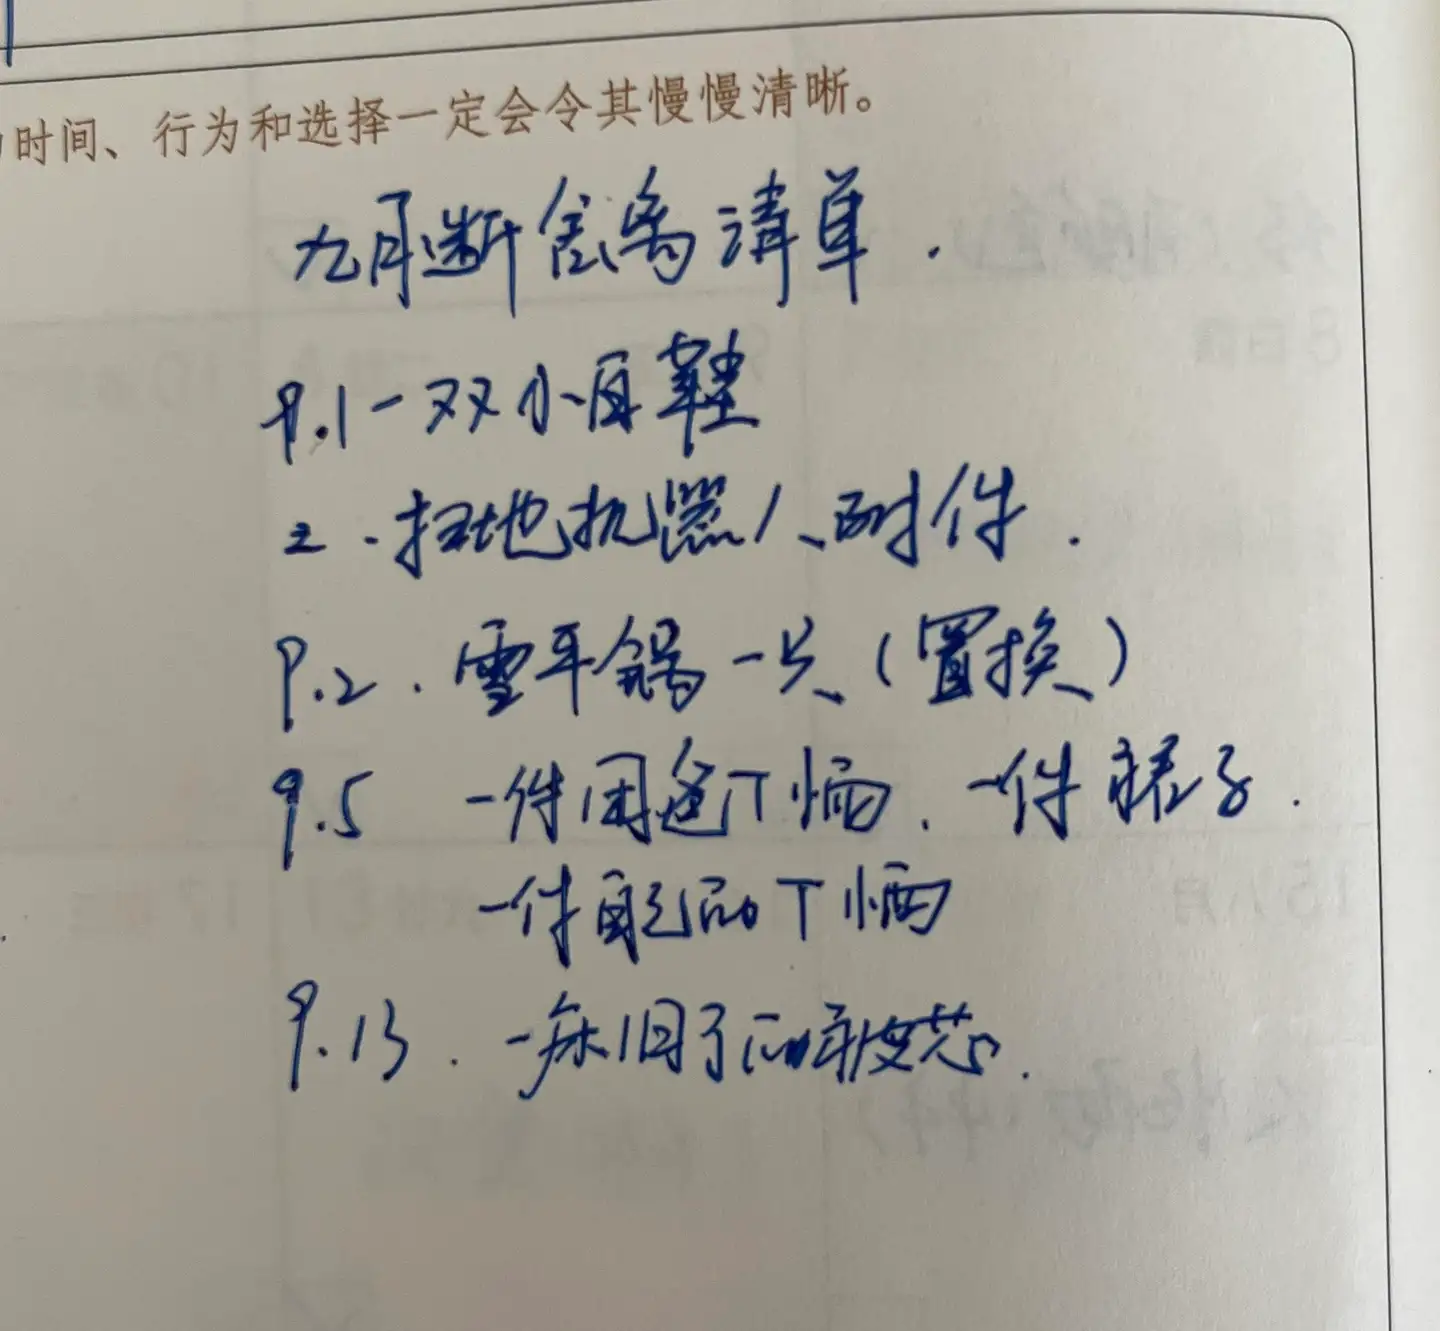 时间、行为和选择一定会令其慢慢清晰。
九月断舍离清单.
9.1 一双小白鞋
2.扫地机器人附件.
9.2.雪平锅一只(置换)
9.5 一件困爸T恤.一件裙子.
一件配品T恤
9.13.一床旧了的蚕被芯.